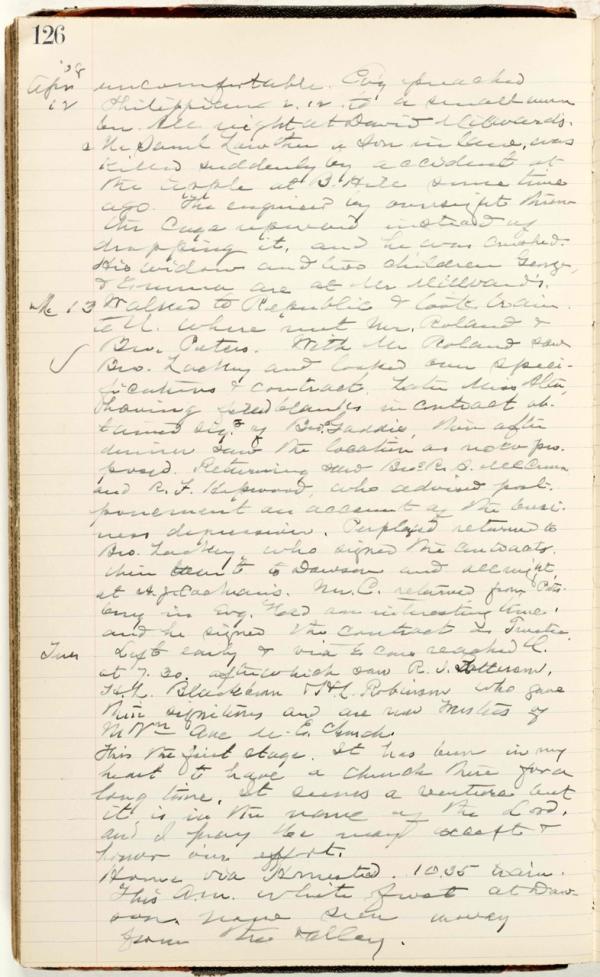 126
'08
Apr. uncomfortable. Ev'g preached
12 Philippians 2.12. to a small num
ber. All night at David Millward's.
Mr Danl. Lawther a Son in law, was
killed suddenly by accident at
the tipple at B. Hill some time
ago. The engineer by oversight threw
the Cage upward instead of
dropping it, and he was crushed.
His widow and two children George,
& Emma are at Mr Millward's.
M. 13 Walked to Republic & took train
to U. where met Mr. Roland &
Bro. Peters. With Mr Roland saw
Bro. Lackey and looked over speci-
fications & contract. Later Miss
having filled blanks in contract ob-
tained sig. of Bro. Gaddis, then after
dinner saw the location as now pro-
posed. Returning saw Bro R. S. McCrum
and R. F. Hopwood, who advised post-
ponement on account of the busi-
ness depression. Perplexed returned to
Bro. Lackey who signed the contracts.
then went to Dawson and all night
at H. J. Cochran's. Mr. C. returned from Pitts-
burg in Evg. Had an interesting time.
and he signed the contract as Trustee.
Tues Left early & via E cars reached C.
at 7.30. after which saw R. J. Patterson,
H. L. Robinson who gave
their signatures and are now Trustees of
M Wm Ave M. E. Church.
This the first stage. It has been in my
heart to have a church there for a
long time. It seems a venture but
it is in the name of the Lord,
and I pray he may accept &
honor our effort.
Home via Homestead. 10.35 train.
This Am. white frost at Daw-
son. none seen away
from the valley.